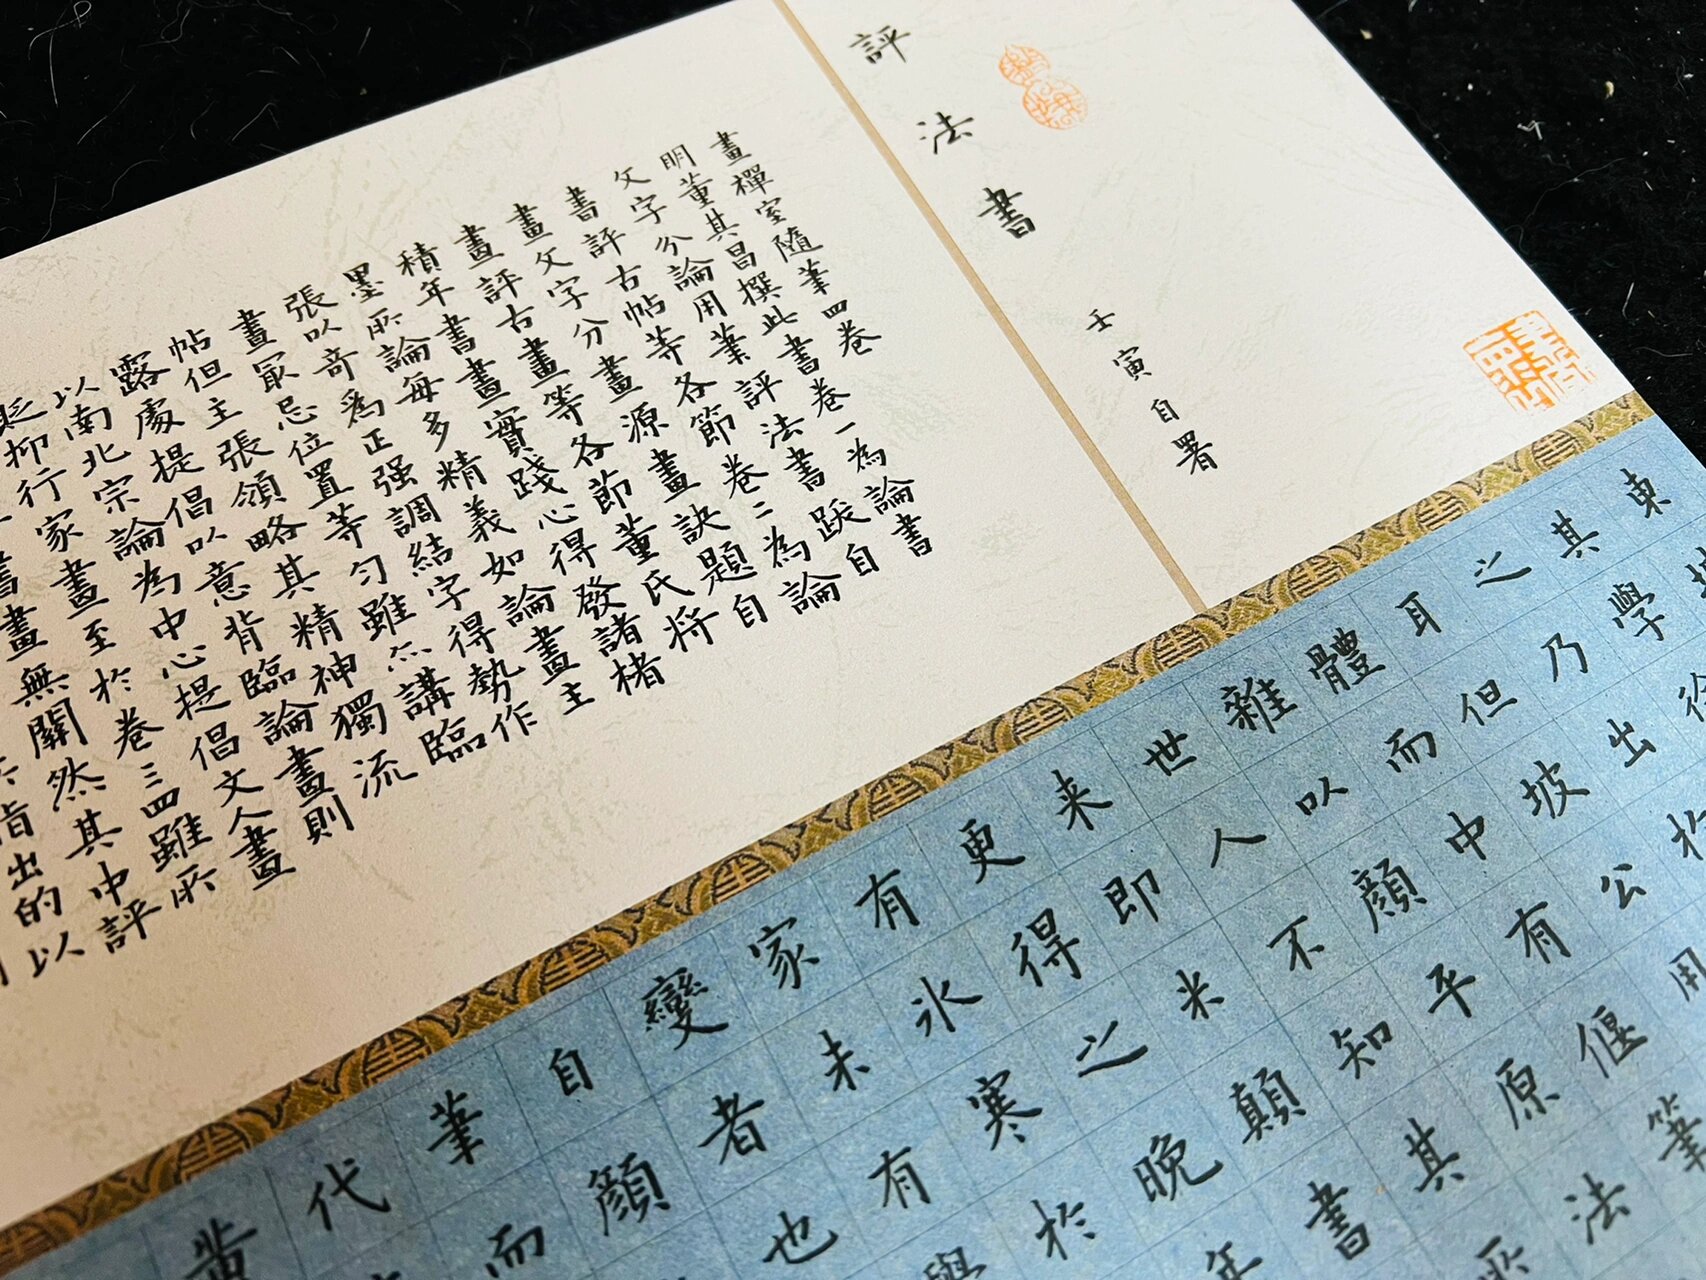 評法書
壬寅自署
畫禪室隨筆四卷
明董其昌撰此書卷一為論書
文字分論用筆評法書跋自
書評古帖等各節卷二為論
畫文字分畫源畫訣題自
畫評古畫等各節董氏將
積年書畫實踐心得發諸楮
墨所論每多精義如論畫主
張以奇為正强調結字得勢作
畫最忌位置等匀雖亦講臨
帖但主張領略其精神獨流
露處提倡以意背臨論畫則
以南北宗論為中心提倡文人畫
貶抑行家畫至於卷三四雖所
書畫無關然其中評
指出的以
東
其學徐
之乃出於
耳但坡公用
體而中有偃筆
雜以顏平原法
世人不知其所
来即米顛書
更得之晚年
有氷寒於
家未有與
變者也
自顏
筆而
代
黃